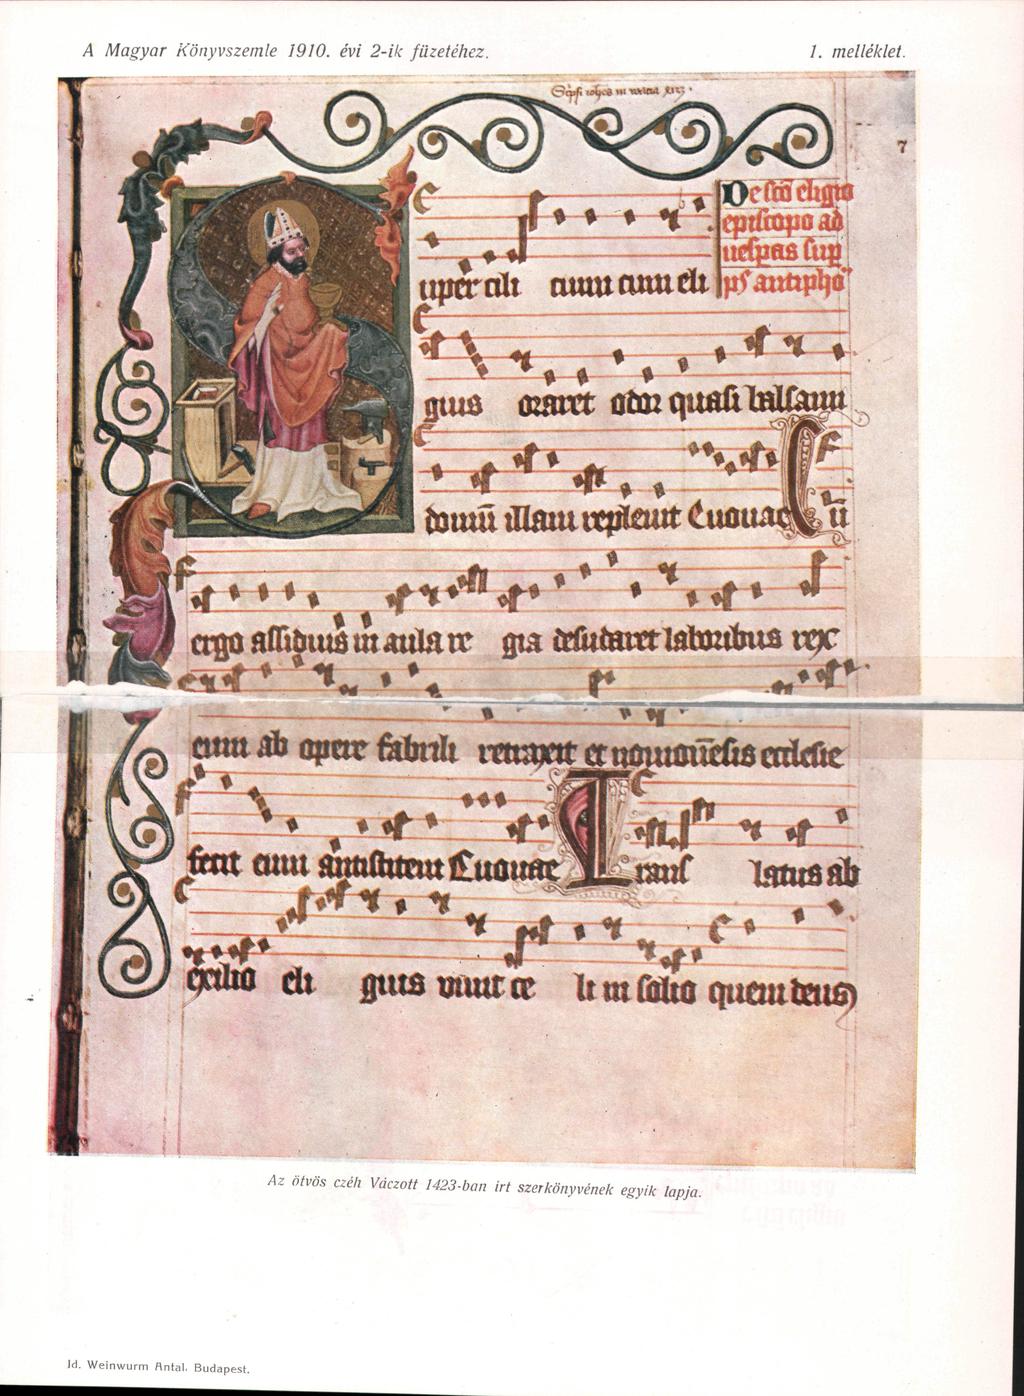 A Magyar Könyvszemle 1910. évi 2-ik füzetéhez.
1. melléklet.
7
De scō eligio
episcopo ad
uesp̄as sup
ps̄ antipho
uper cili cium cum eli
gius oraret odor quasi balsami
domū illam repleuit Euouae Cū
ergo assiduus in aula re gia desudaret laboribus rex
eum ab opere fabrili retraxit et nouiomēsis ecclesie
fecit eum antistitem Euouae Trans latus ab
exilio eli gius viuit ce li in solio quem deus
Az ötvös czéh Váczott 1423-ban irt szerkönyvének egyik lapja.
Id. Weinwurm Antal. Budapest.